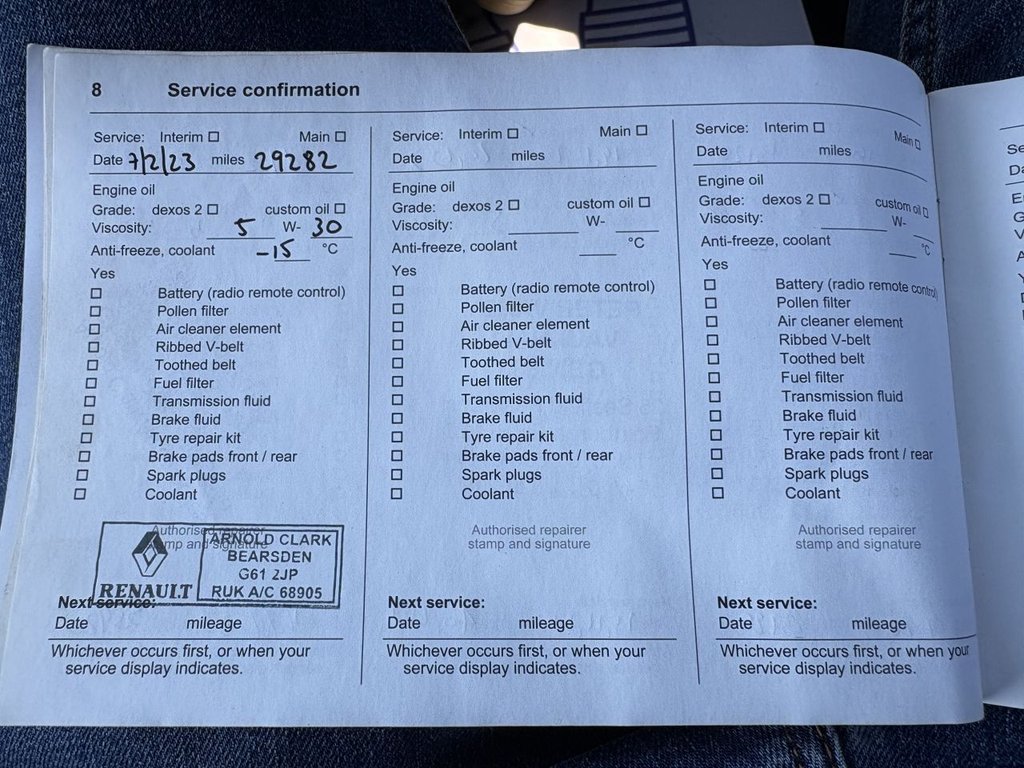 8 Service confirmation
Service: Interim ☐ Main ☐
Date 7/2/23 miles 29282
Engine oil
Grade: dexos 2 ☐ custom oil ☐
Viscosity: 5 W- 30
Anti-freeze, coolant -15 °C
Yes
☐ Battery (radio remote control)
☐ Pollen filter
☐ Air cleaner element
☐ Ribbed V-belt
☐ Toothed belt
☐ Fuel filter
☐ Transmission fluid
☐ Brake fluid
☐ Tyre repair kit
☐ Brake pads front / rear
☐ Spark plugs
☐ Coolant
Authorised repairer
stamp and signature
RENAULT
ARNOLD CLARK
BEARSDEN
G61 2JP
RUK A/C 68905
Next service:
Date mileage
Whichever occurs first, or when your
service display indicates.
Service: Interim ☐ Main ☐
Date miles
Engine oil
Grade: dexos 2 ☐ custom oil ☐
Viscosity: W-
Anti-freeze, coolant °C
Yes
☐ Battery (radio remote control)
☐ Pollen filter
☐ Air cleaner element
☐ Ribbed V-belt
☐ Toothed belt
☐ Fuel filter
☐ Transmission fluid
☐ Brake fluid
☐ Tyre repair kit
☐ Brake pads front / rear
☐ Spark plugs
☐ Coolant
Authorised repairer
stamp and signature
Next service:
Date mileage
Whichever occurs first, or when your
service display indicates.
Service: Interim ☐ Main ☐
Date miles
Engine oil
Grade: dexos 2 ☐ custom oil ☐
Viscosity: W-
Anti-freeze, coolant °C
Yes
☐ Battery (radio remote control)
☐ Pollen filter
☐ Air cleaner element
☐ Ribbed V-belt
☐ Toothed belt
☐ Fuel filter
☐ Transmission fluid
☐ Brake fluid
☐ Tyre repair kit
☐ Brake pads front / rear
☐ Spark plugs
☐ Coolant
Authorised repairer
stamp and signature
Next service:
Date mileage
Whichever occurs first, or when your
service display indicates.